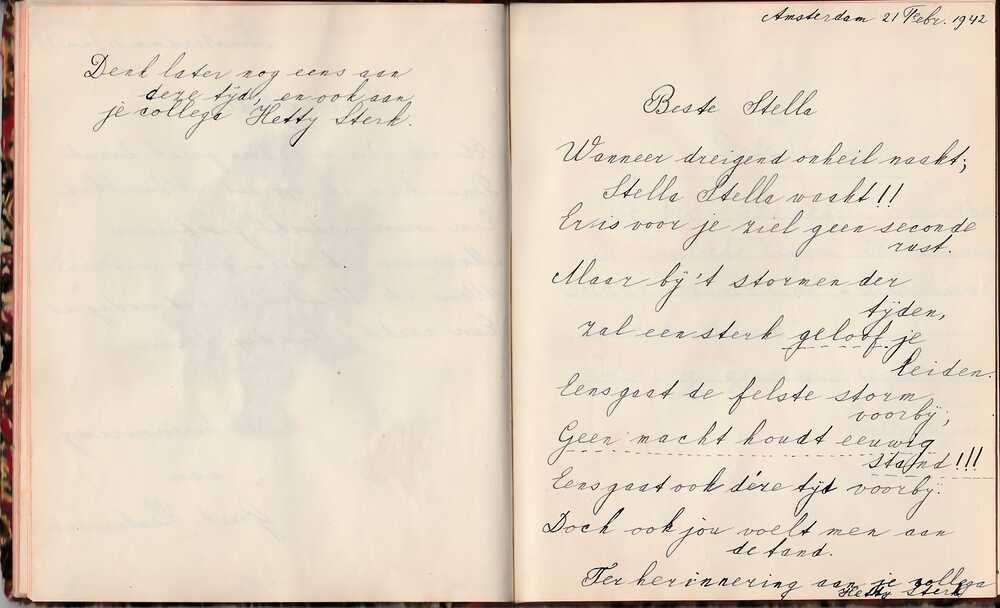 Denk later nog eens aan
deze tijd, en ook aan
je collega Hetty Sterk.
Amsterdam 21 Febr. 1942
Beste Stella
Wanneer dreigend onheil naakt;
Stella Stella waakt!!
Er is voor je ziel geen seconde
rast.
Maar bij 't stormen der
tijden,
Zal een sterk geloof je
leiden.
Eens gaat de felste storm
voorbij;
Geen macht houdt eeuwig
stand!!!
Eens gaat ook déze tijd voorbij.
Doch ook jou voelt men aan
de tand.
Ter herinnering aan je collega
Hetty Sterk